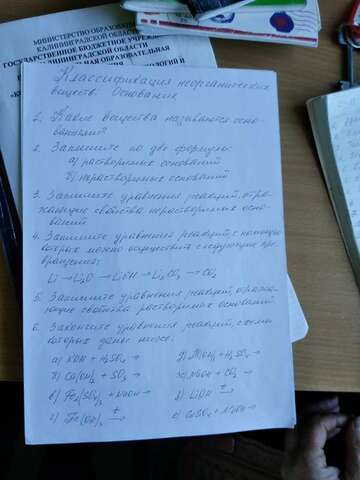 МИНИСТЕРСТВО ОБРАЗОВА
КАЛИНИНГРАДСКОЙ ОБЛАСТ
ГОСУДАРСТВЕННОЕ БЮДЖЕТНОЕ УЧРЕЖ
КАЛИНИНГРАДСКОЙ ОБЛАСТИ
ОБРАЗОВАТЕЛЬНАЯ
Классификация неорганических
веществ. Основания
1. Какие вещества называются осно-
ваниями?
2. Запишите по две формулы:
а) растворимых оснований
б) нерастворимых оснований
3. Запишите уравнения реакций, отра-
жающие свойства нерастворимых осно-
ваний
4. Запишите уравнения реакций, с помощью
которых можно осуществить следующие пре-
вращения:
Li → Li2O → LiOH → Li2CO3 → CO2
5. Запишите уравнения реакций, отража-
ющие свойства растворимых оснований
6. Закончите уравнения реакций, схемы
которых даны ниже:
а) KOH + H2SO4 → д) Al(OH)3 + H2SO4 →
б) Ca(OH)2 + SO3 → е) NaOH + CO2 →
в) Fe2(SO4)3 + NaOH → ж) LiOH t→
г) Fe(OH)3 t→ з) CuSO4 + NaOH →